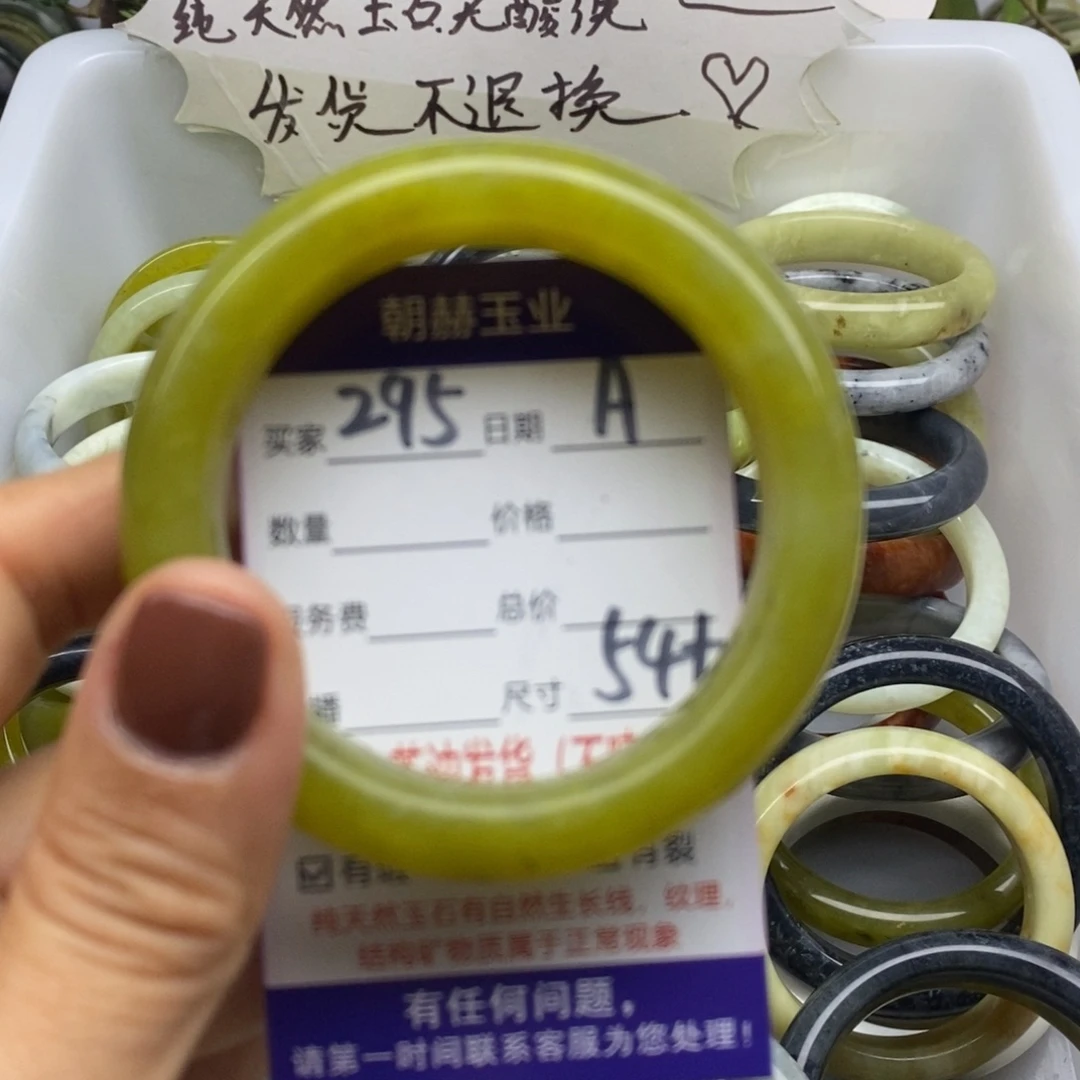 纯天然玉石无酸洗
发货不退换
朝赫玉业
买家 295 日期 A
数量 价格
务费 总价
尺寸 54
发货
有 裂
纯天然玉石有自然生长线、纹理、
结构矿物质属于正常现象
有任何问题，
请第一时间联系客服为您处理！